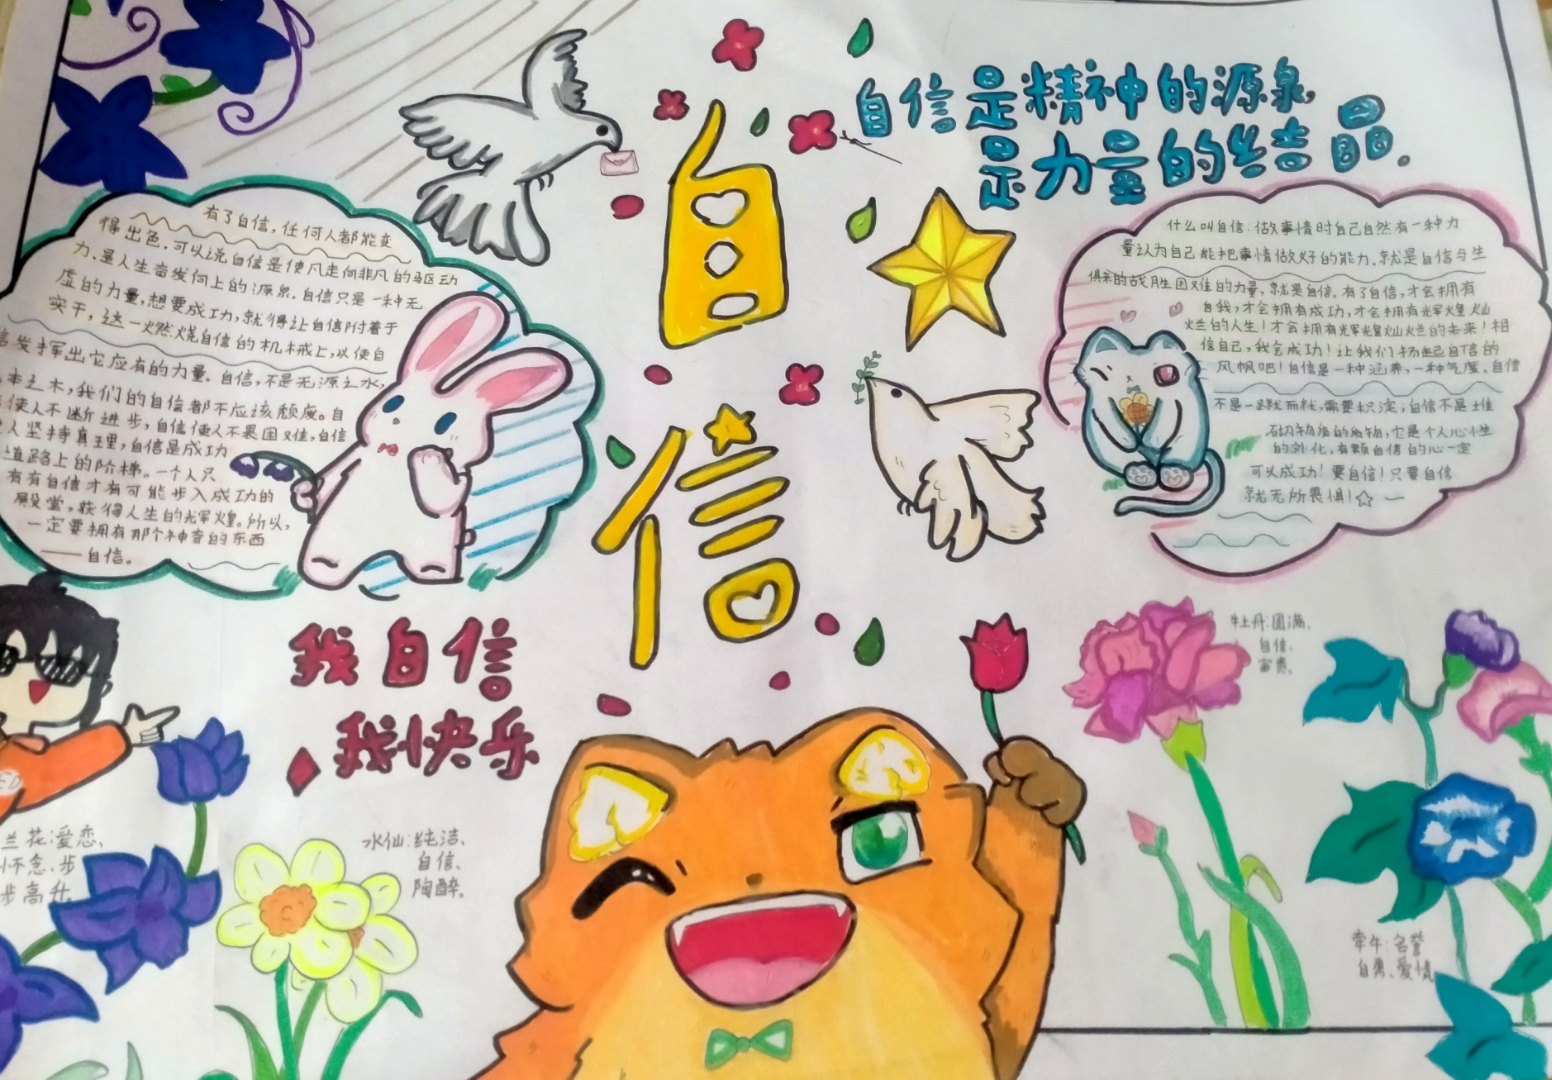 自信是精神的源泉，
是力量的结晶。
自信
有了自信，任何人都能变
得出色。可以说自信是使凡走向非凡的驱动
力。是人生奋发向上的源泉。自信只是一种无
虚的力量，想要成功，就得让自信附着于
实干，这一燃烧自信的机械上，以使自
信发挥出它应有的力量。自信，不是无源之水，
本之木，我们的自信都不应该颓废。自
使人不断进步，自信使人不畏困难，自信
人坚持真理，自信是成功
道路上的阶梯。一个人只
有有自信才有可能步入成功的
殿堂，获得人生的辉煌。所以，
一定要拥有那个神奇的东西
——自信。
什么叫自信：做事情时自己自然有一种力
量认为自己能把事情做好的能力。就是自信与生
俱来的战胜困难的力量，就是自信。有了自信，才会拥有
自我，才会拥有成功，才会拥有辉煌灿
烂的人生！才会拥有辉煌灿烂的未来！相
信自己，我会成功！让我们扬起自信的
风帆吧！自信是一种涵养，一种气度，自信
不是一蹴而就，需要积淀；自信不是
它是个人心性
的外化，有颗自信的心一定
可以成功！要自信！只要自信
就无所畏惧！
我自信
我快乐
兰花：爱恋、
怀念、步
步高升
水仙：纯洁、
自信、
陶醉。
牡丹：圆满、
自信、
富贵。
牵牛：名誉
爱情